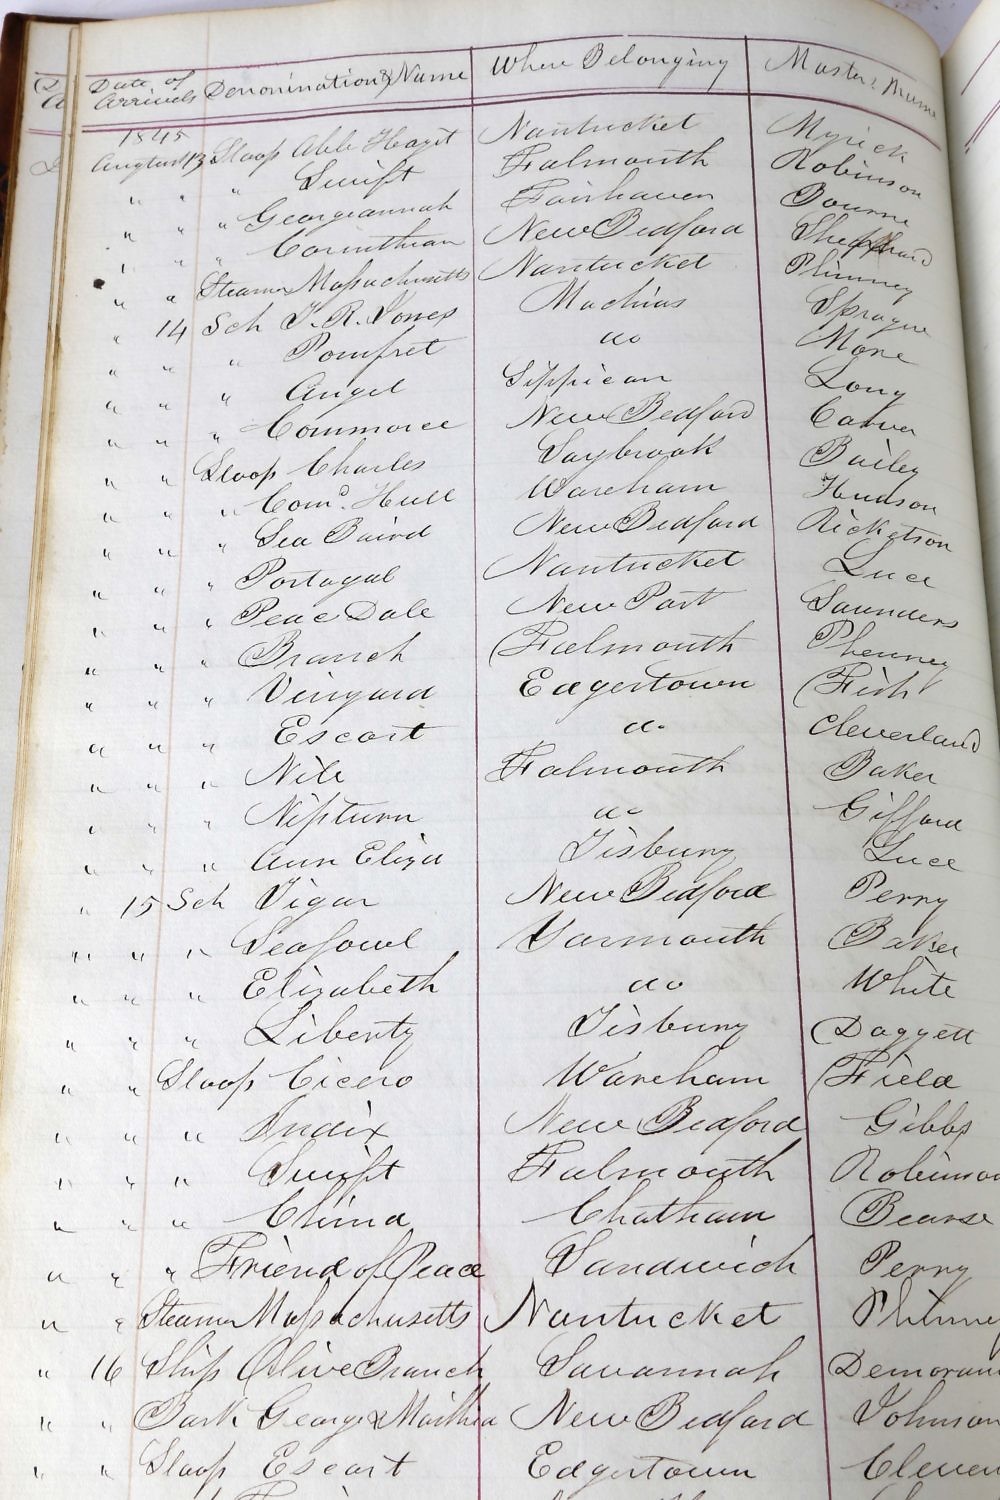 Date of Arrivals Denomination & Name Where Belonging Masters Name
1845
August 13 Sloop Nantucket Myrick
" " " Swift Falmouth Robinson
" " " Georgeannah Fairhaven Bourne
" " " Corinthian New Bedford Sheppard
" " Steamer Massachusetts Nantucket Phinney
" 14 Sch T. R. Jones Machias Sprague
" " " Pomfret do More
" " " Angel Sippican Long
" " " Commorce New Bedford Carver
" " Sloop Charles Saybrook Bailey
" " " Comd. Hull Wareham Hudson
" " " Sea Baird New Bedford Ricketson
" " " Portugal Nantucket Luce
" " " Peace Dale New Port Saunders
" " " Branch Falmouth Phenney
" " " Vinyard Edgertown Fish
" " " Escort do Cleverland
" " " Nile Falmouth Baker
" " " Nipturn do Gifford
" " " Ann Eliza Tisbury Luce
" 15 Sch Vigar New Bedford Perry
" " " Seafowl Yarmouth Baker
" " " Elizabeth do White
" " " Liberty Tisbury Daggett
" " Sloop Cicero Wareham Field
" " " Index New Bedford Gibbs
" " " Swift Falmouth Robinson
" " " China Chatham Bearse
" " " Friend of Peace Sandwich Perry
" " Steamer Massachusetts Nantucket Phinney
" 16 Ship Olive Branch Savannah
" " Bark George & Marthea New Bedford Johnson
" " Sloop Escort Edgertown Clever